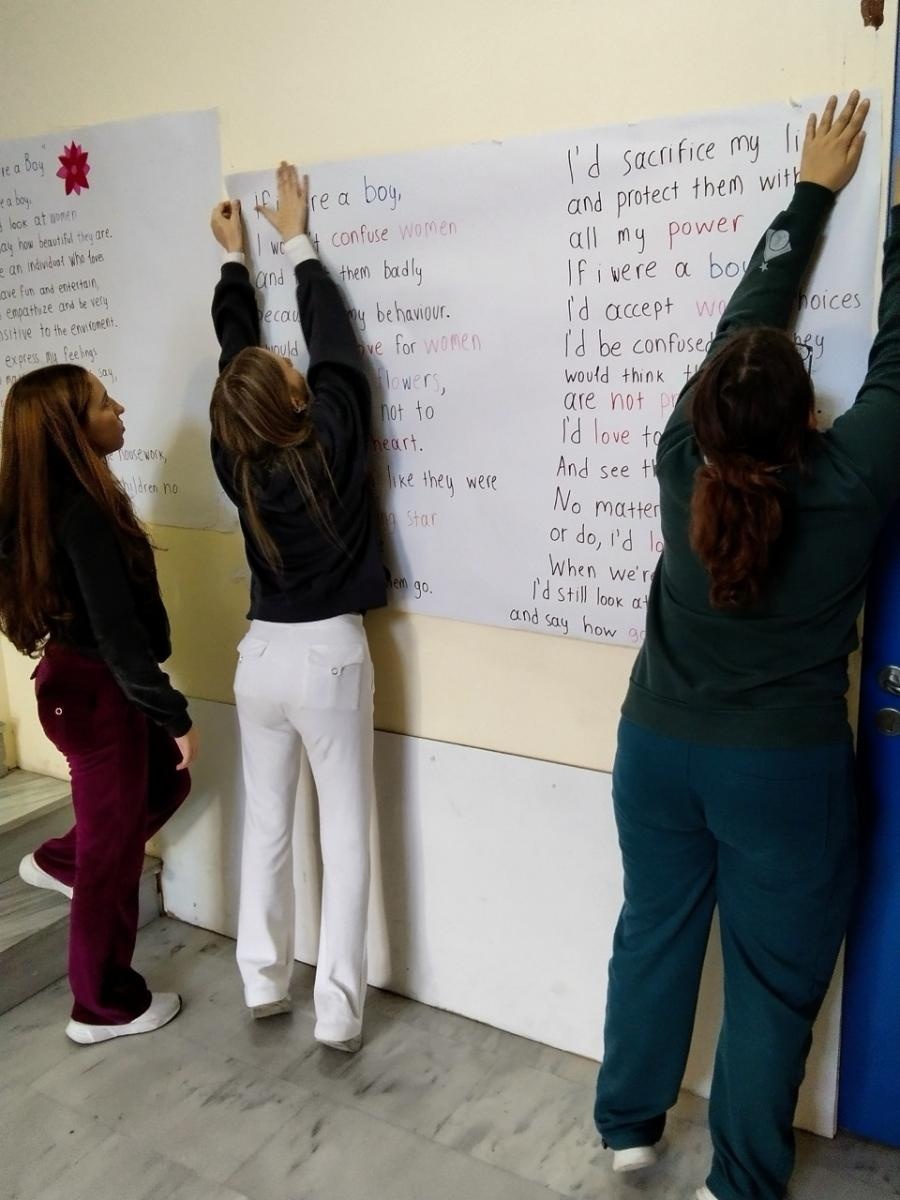 re a Boy"
e a boy,
d look at women
say how beautiful they are.
e an individual who loves
have fun and entertain,
empathize and be very
sitive to the enviroment.
express my feelings
say,
housework,
children no
if i re a boy,
I wo t confuse women
and them badly
becau my behaviour.
would ve for women
flowers,
not to
heart.
like they were
star
em go.
I'd sacrifice my li
and protect them with
all my power
If i were a boy
I'd accept wo hoices
I'd be confused they
would think t
are not pr
I'd love to
And see th
No matter
or do, i'd lo
When we're
I'd still look at
and say how go